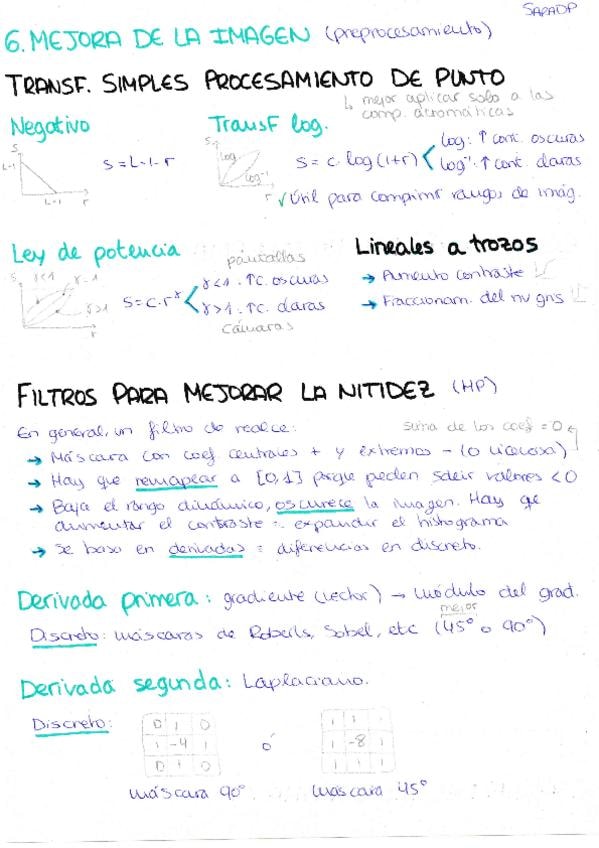 SAPADP
6. MEJORA DE LA IMAGEN (preprocesamiento)
TRANSF. SIMPLES PROCESAMIENTO DE PUNTO
↳ mejor aplicar solo a las
comp. acromáticas
Negativo
S
L-1
L-1
r
S = L-1-r
Transf log.
S
log
log⁻¹
r
S = c·log(1+r)
log: ↑ cont. oscuras
log⁻¹: ↑ cont. claras
✓ Útil para comprimir rangos de imág.
Ley de potencia
S
γ<1
γ=1
γ>1
r
S = c·r^γ
pantallas
γ<1: ↑c. oscuras
γ>1: ↑c. claras
cámaras
Lineales a trozos
→ Aumento contraste
→ Fraccionam. del nv gris
FILTROS PARA MEJORAR LA NITIDEZ (HP)
En general, un filtro de realce:
suma de los coef = 0
→ Máscara con coef centrales + y extremos - (o viceversa)
→ Hay que remapear a [0,1] porque pueden salir valores <0
→ Baja el rango dinámico, oscurece la imagen. Hay que
aumentar el contraste = expandir el histograma
→ Se basa en derivadas = diferencias en discreto.
Derivada primera: gradiente (vector) → módulo del grad.
mejor
Discreto: máscaras de Roberts, Sobel, etc (45° o 90°)
Derivada segunda: Laplaciano.
Discreto:
0 1 0
1 -4 1
0 1 0
ó
1 1 1
1 -8 1
1 1 1
máscara 90°
máscara 45°